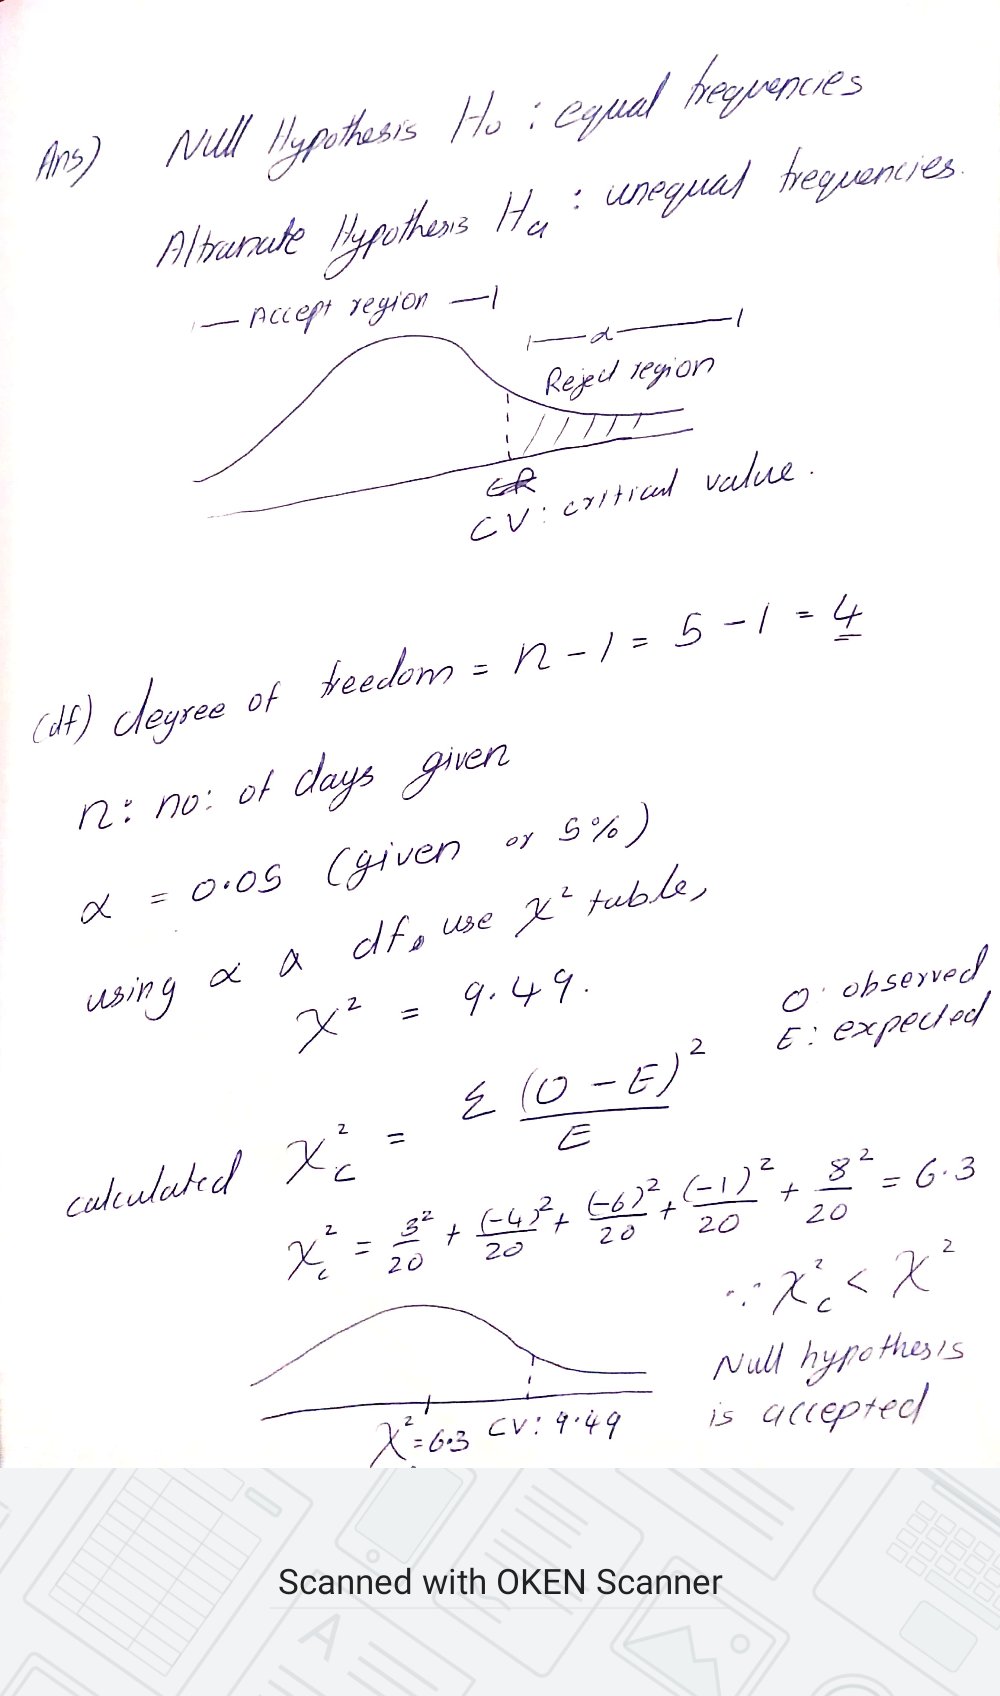 Ans) Null Hypothesis H₀ : equal frequencies
Altranate Hypothesis Hₐ : unequal frequencies.
Accept region
α
Reject region
CV : critical value.
(df) degree of freedom = n - 1 = 5 - 1 = 4
n : no: of days given
α = 0.05 (given or 5%)
using α & df, use χ² table,
χ² = 9.49.
O : observed
E : expected
calculated χ²c = Σ (O - E)² / E
χ²c = 3²/20 + (-4)²/20 + (-6)²/20 + (-1)²/20 + 8²/20 = 6.3
∵ χ²c < χ²
Null hypothesis
is accepted
χ² = 6.3 CV : 9.49
Scanned with OKEN Scanner